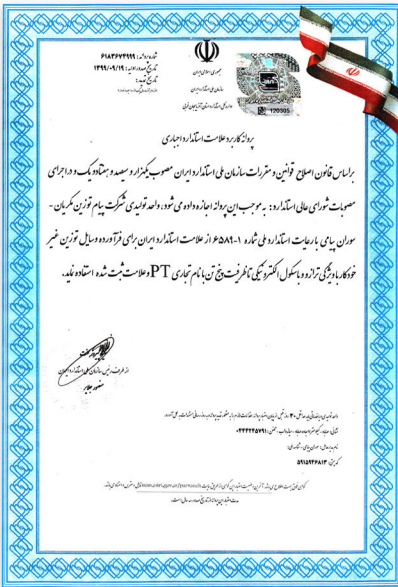 شماره پروانه: ۶۱۸۳۶۷۴۹۹۹
تاریخ صدور اولیه: ۱۳۹۹/۰۹/۱۹
تاریخ تمدید:
جمهوری اسلامی ایران
سازمان ملی استاندارد ایران
اداره کل استاندارد استان آذربایجان غربی
120505
پروانه کاربرد علامت استاندارد اجباری
براساس قانون اصلاح قوانین و مقررات سازمان ملی استاندارد ایران مصوب یکهزار و سیصد و هفتاد و یک و در اجرای
مصوبات شورای عالی استاندارد: به موجب این پروانه اجازه داده می شود، واحد تولیدی شرکت پیام توزین مکریان -
سوران پیامی با رعایت استاندارد ملی شماره ۱-۶۵۸۹ از علامت استاندارد ایران برای فرآورده وسایل توزین غیر
خودکار با ویژگی ترازو و باسکول الکترونیکی تا ظرفیت پنج تن با نام تجاری PT و علامت ثبت شده استفاده نماید.
از طرف رئیس سازمان ملی استاندارد ایران
تلفن: ۰۴۴۴۲۴۵۷۹۱
کد پستی: ۵۹۱۵۹۴۶۸۱۳